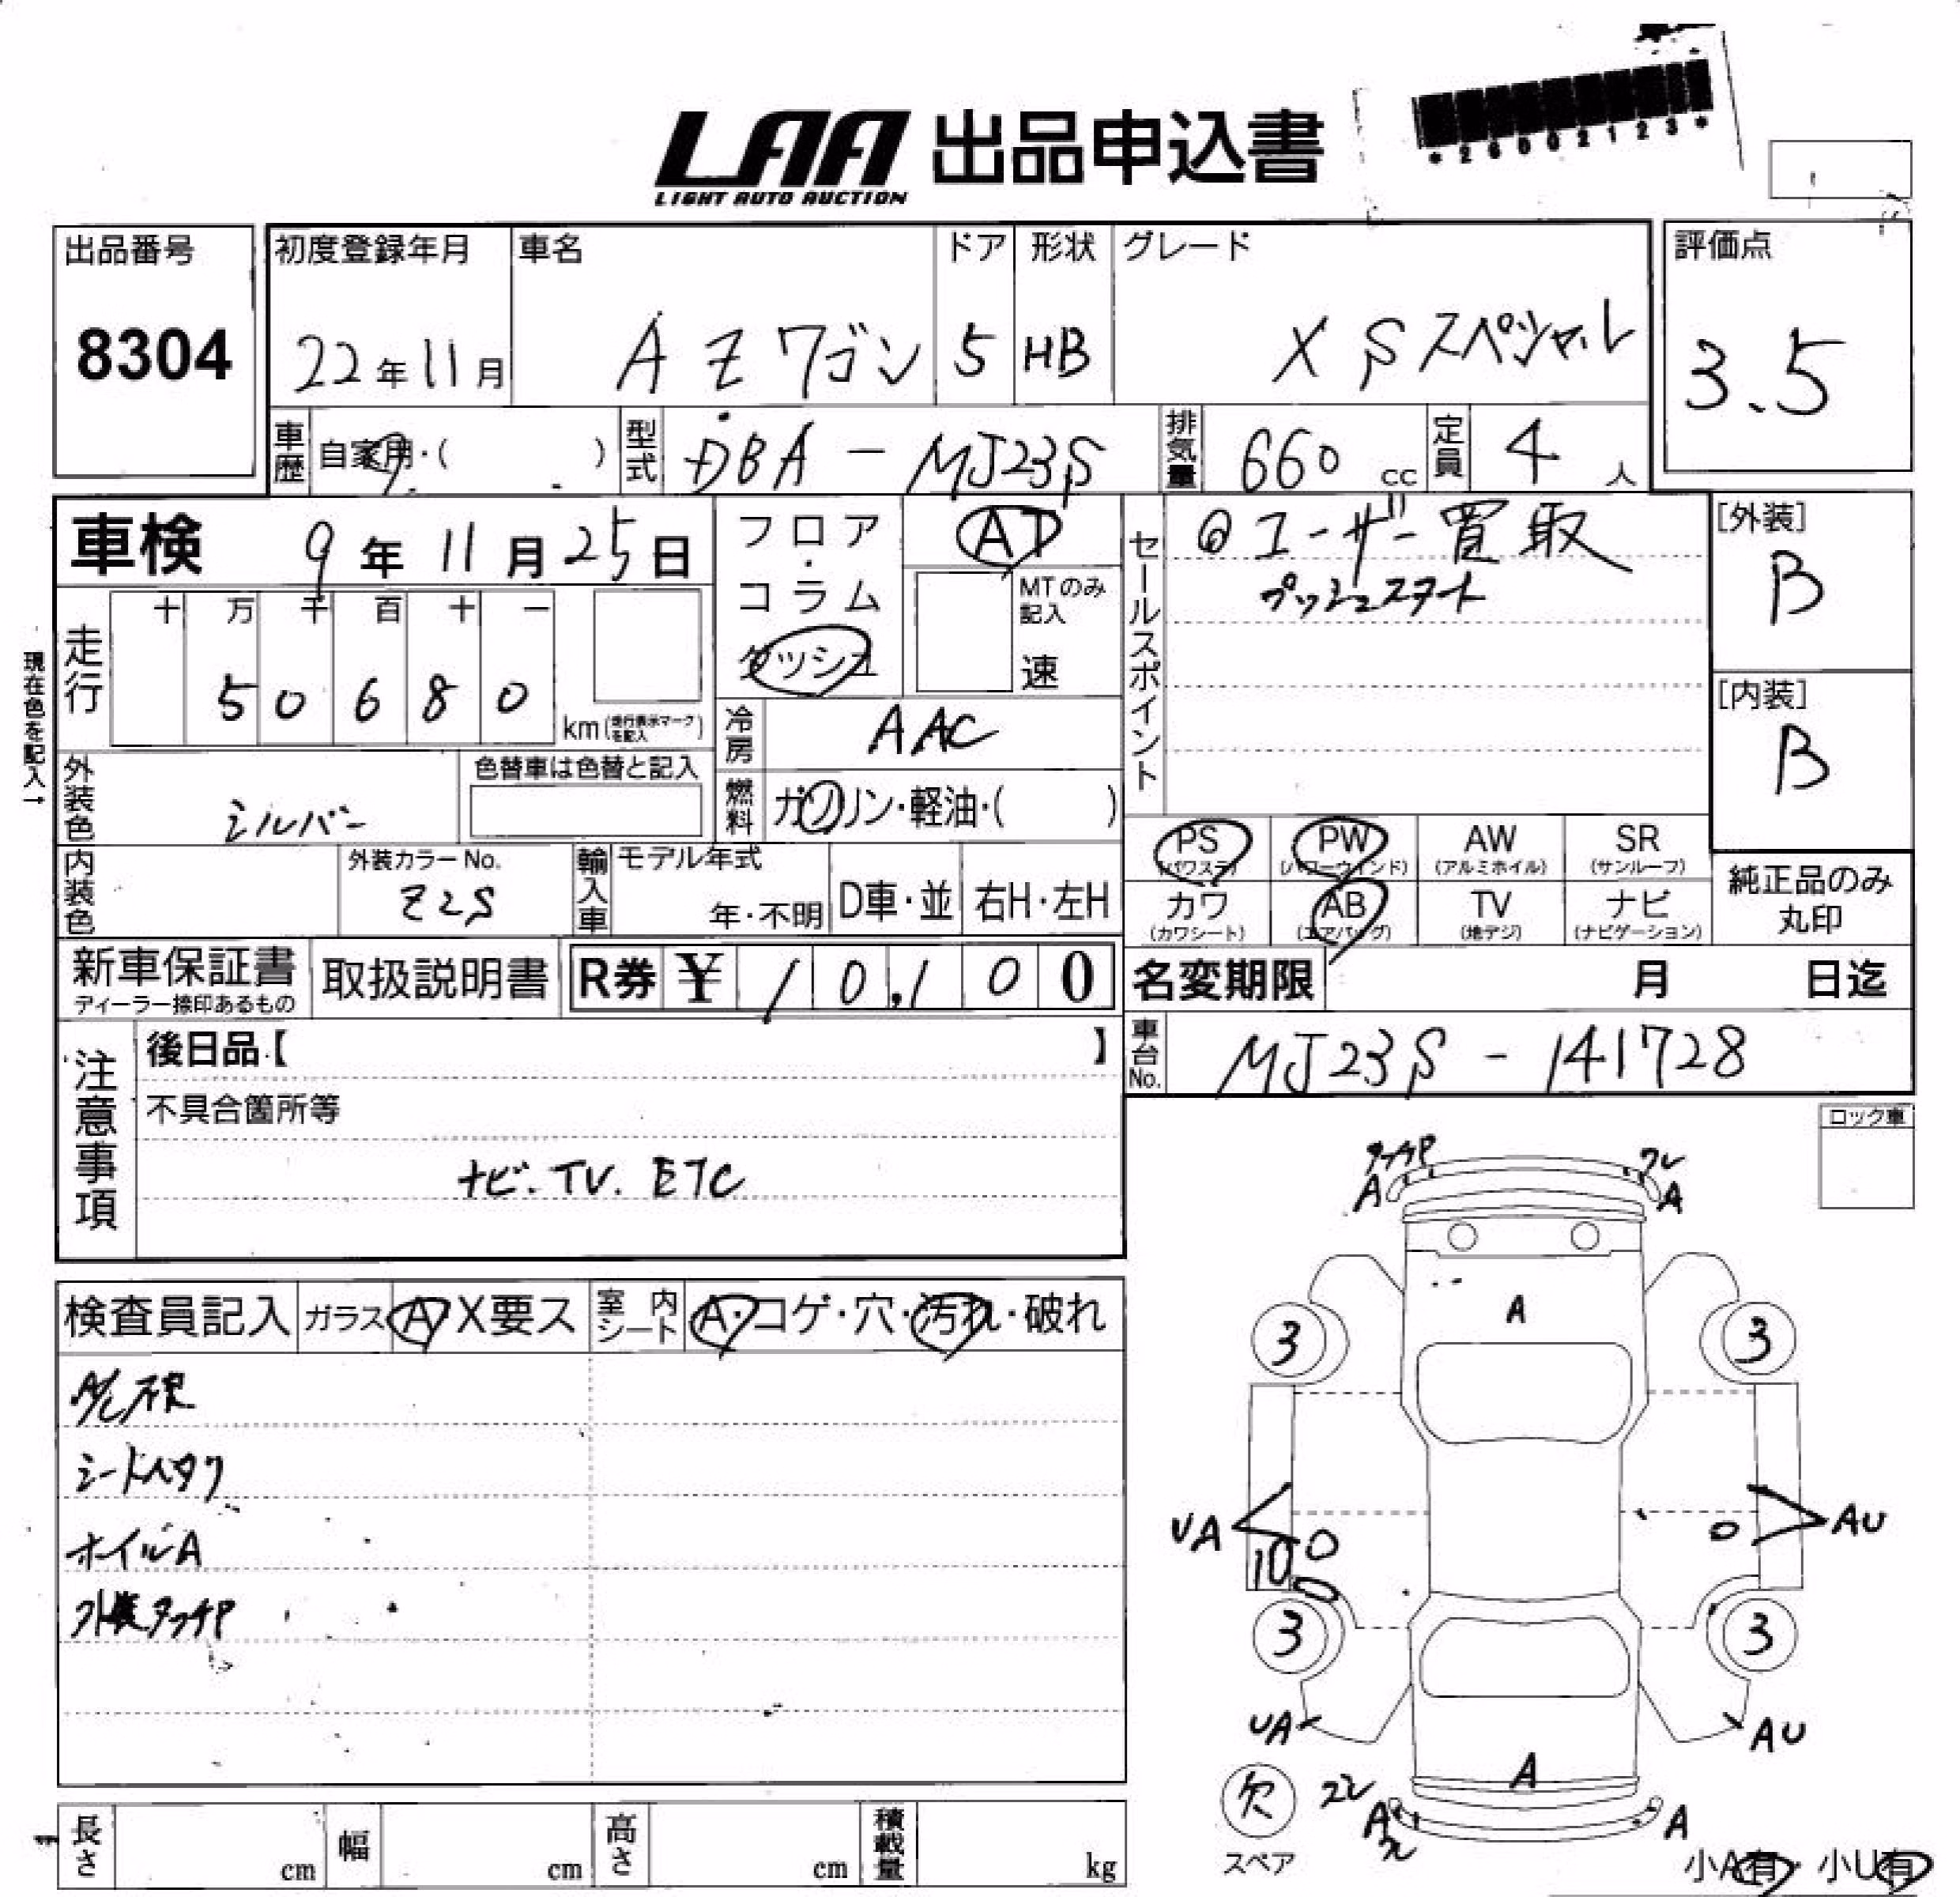 LAA 出品申込書
LIGHT AUTO AUCTION
*26002123*
出品番号 8304
初度登録年月 22年11月
車名 AZワゴン
ドア 5
形状 HB
グレード XSスペシャル
評価点 3.5
車歴 自家用・( )
型式 DBA-MJ23S
排気量 660 cc
定員 4 人
車検 9年11月25日
フロア・コラム ダッシュ
AT
MTのみ記入 速
セールスポイント
◎ユーザー買取
プッシュスタート
[外装] B
[内装] B
現在色を記入→
走行 十 万 千 百 十 一
5 0 6 8 0
km(走行表示マークを記入)
冷房 AAC
外装色 シルバー
色替車は色替と記入
燃料 ガソリン・軽油・( )
PS (パワステ) PW (パワーウインド) AW (アルミホイル) SR (サンルーフ)
カワ (カワシート) AB (エアバッグ) TV (地デジ) ナビ (ナビゲーション)
純正品のみ丸印
内装色
外装カラーNo. Z2S
輸入車 モデル年式 年・不明 D車・並 右H・左H
新車保証書 ディーラー捺印あるもの
取扱説明書
R券 ¥ 10,100
名変期限 月 日迄
車台No. MJ23S-141728
注意事項
後日品【 】
不具合箇所等
ナビ.TV.ETC
ロック車
タッチP
A
ワレ
A
検査員記入 ガラス A・X要ス 室内シート A・コゲ・穴・汚れ・破れ
A/C不良
シートヘタリ
ホイルA
外装タッチP
A
3 3
UA AU
10
3 3
UA AU
A
欠
スペア
A
A
小A有・小U有
長さ cm 幅 cm 高さ cm 積載量 kg